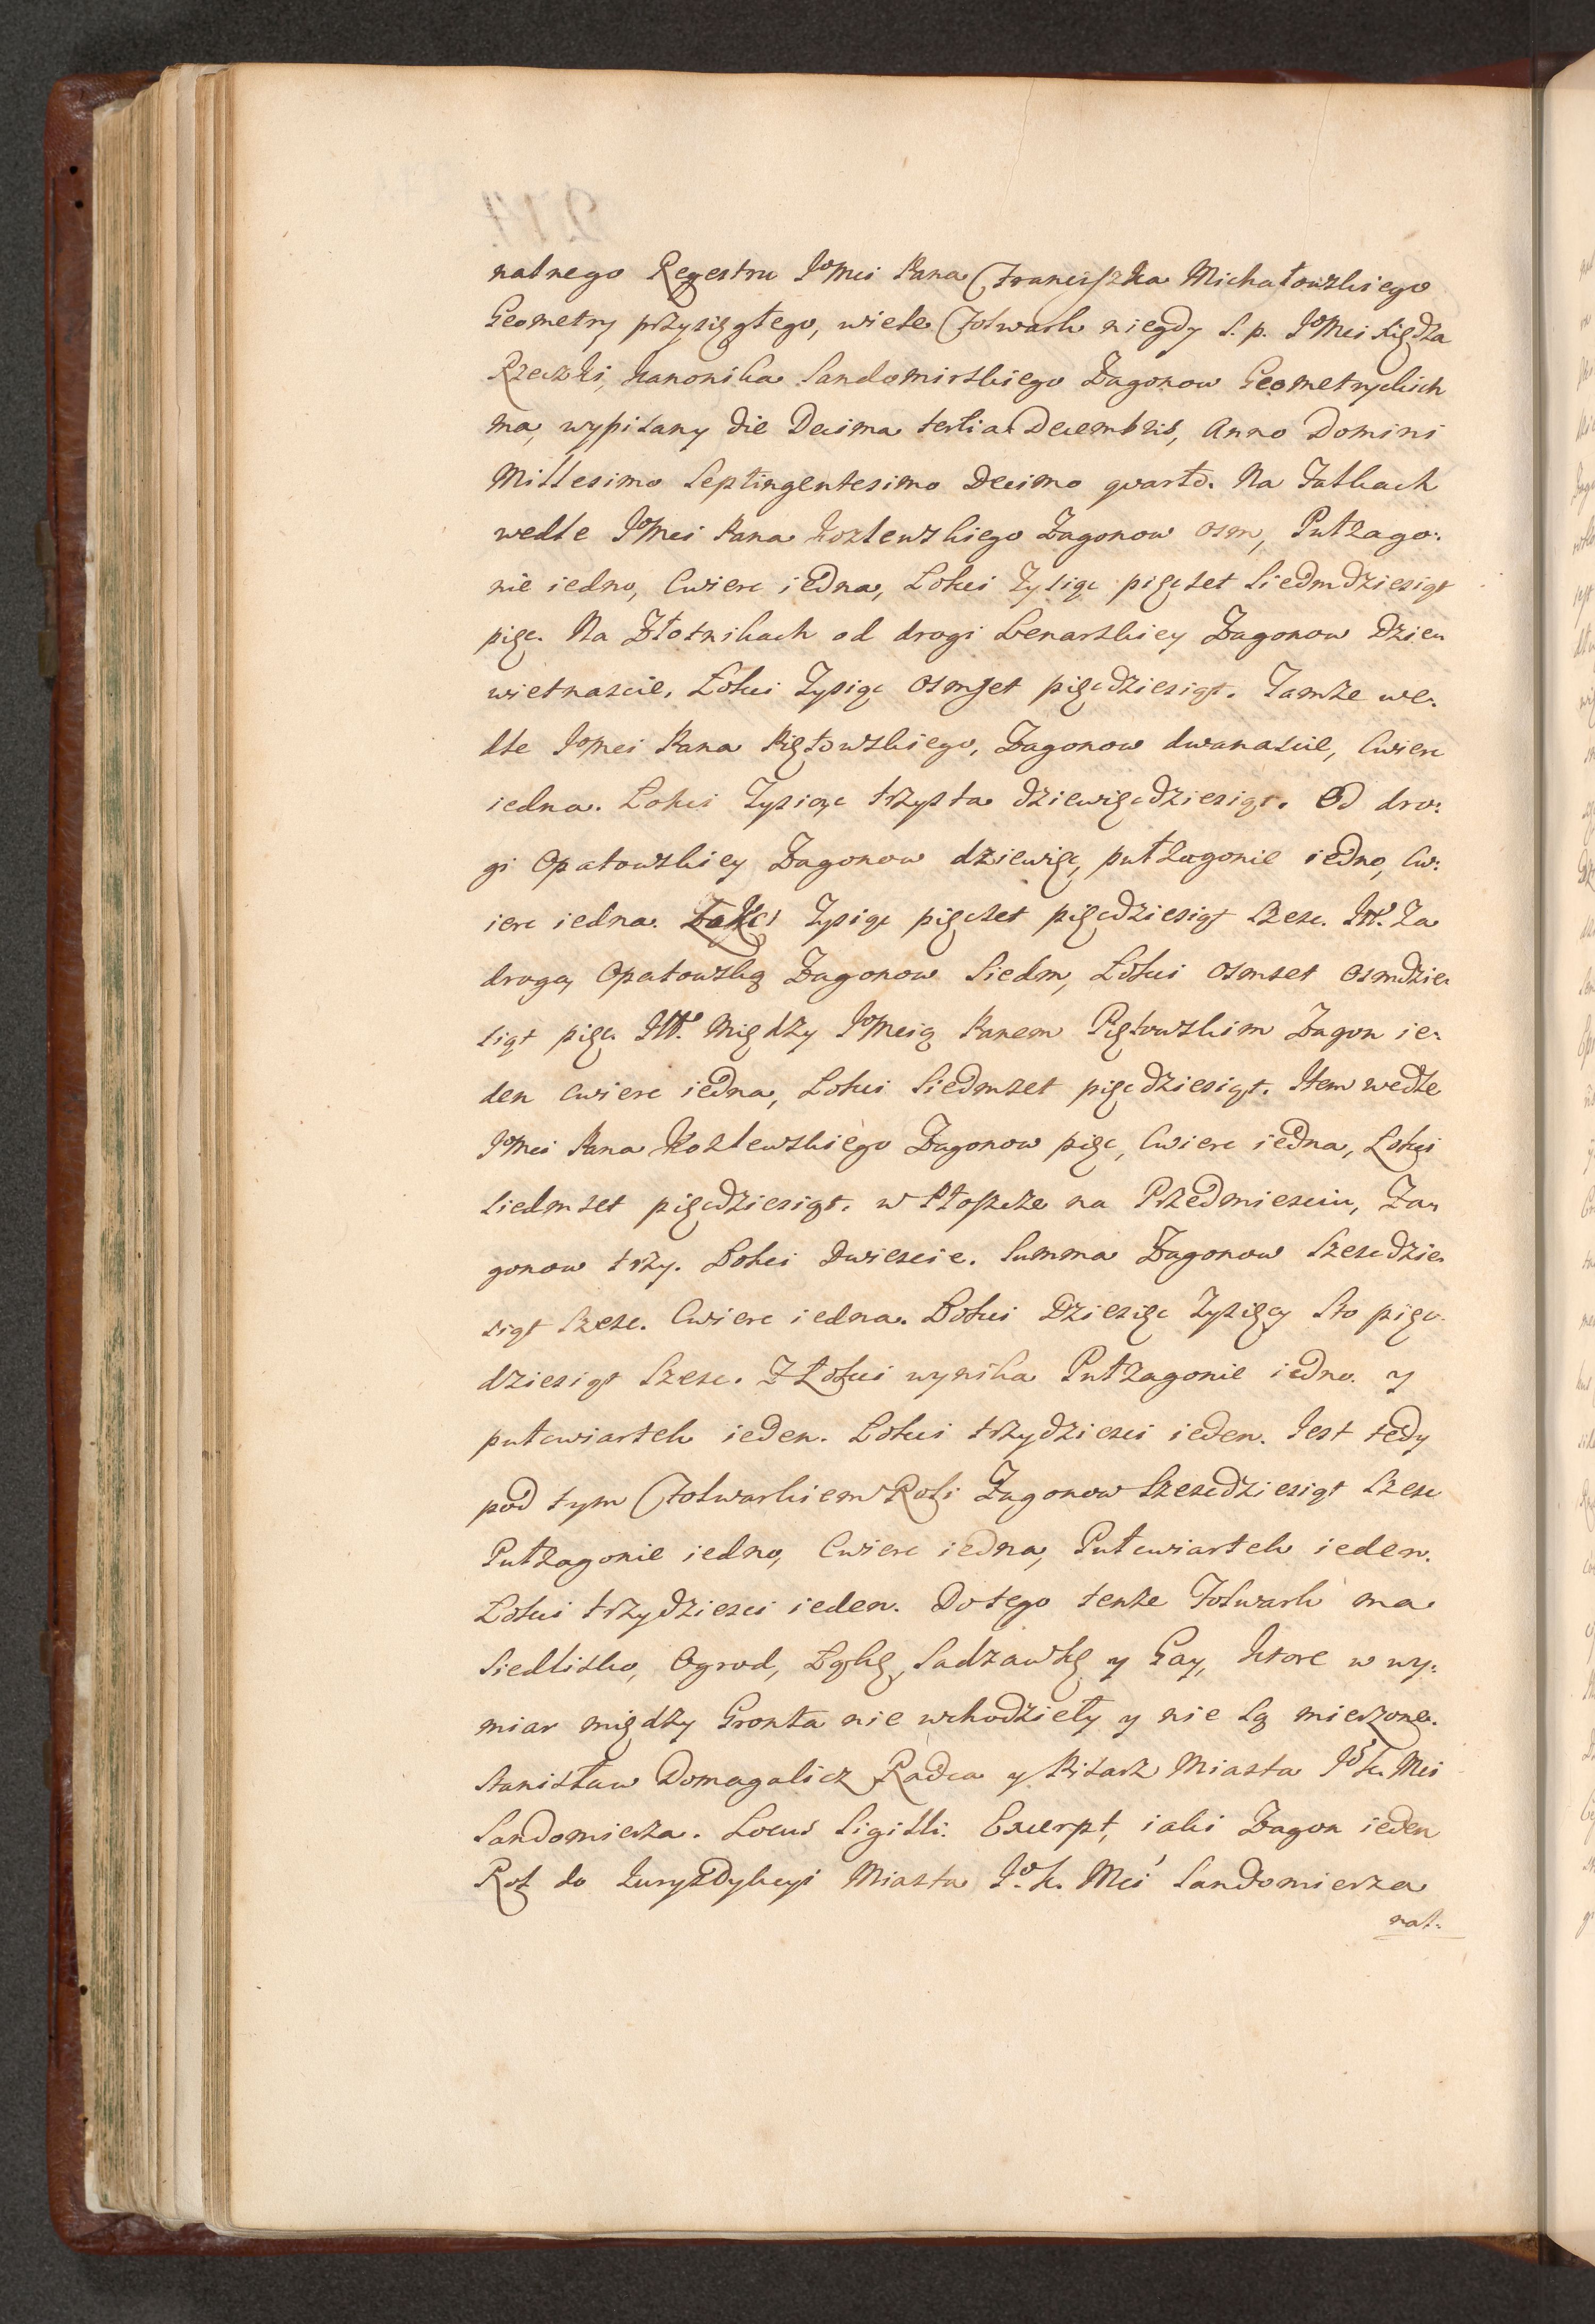 nalnego Regestru JoMci Pana Franciszka Michałowskiego
Geometry przysięgłego, wiele Folwark niegdy S. p. JoMci Xiędza
Rzeczki, Kanonika Sandomirskiego Zagonow Geometrychich
ma, wypisany die Decima tertia Decembris, Anno Domini
Millesimo Septingentesimo Decimo quarto. Na Jatkach
wedle JoMci Pana Kozlewskiego Zagonow osm, Pułzago:
nie iedno, Cwierc iedna, Łokci Tysiąc pięcset Siedmdziesiąt
pięc. Na Złotnikach od drogi Lenarskiey Zagonow Dzie:
wietnascie, Łokci Tysiąc osmset pięcdziesiąt. Tamze we:
dle JoMci Pana Piętowskiego, Zagonow dwanascie, Cwierc
iedna. Łokci Tysiąc trzysta dziewięcdziesiąt. Od dro:
gi Opatowskiey Zagonow dziewięc, pułzagonie iedno, Cw:
ierc iedna. Łokci Tysiąc pięcset pięcdziesiąt Szesc. Itt. Za
drogą Opatowską Zagonow Siedm, Łokci osmset osmdzie:
siąt pięc. Itt. Między JoMcią Panem Piętowskim Zagon ie:
den cwierc iedna, Łokci Siedmset pięcdziesiąt. Item wedle
JoMci Pana Kozlewskiego Zagonow pięc, Cwierc iedna, Łokci
siedmset pięcdziesiąt. w Płoszcze na Przedmiesciu, Za:
gonow trzy. Łokci Dwiescie. Summa Zagonow Szescdzie:
siąt Szesc. Cwierc iedna. Łokci Dziesięc Tysięcy Sto pięc:
dziesiąt Szesc. Z Łokci wynika Pułzagonie iedno. y
pułcwiartek ieden. Łokci trzydziesci ieden. Jest tedy
pod tym Folwarkiem Roli Zagonow Szescdziesiąt Szesc
Pułzagonie iedno, Cwierc iedna, Pułcwiartek ieden.
Łokci trzydziesci ieden. Do tego tenze Folwark ma
Siedlisko, Ogrod, Łąkę, Sadzawkę y Gay, ktore w wy:
miar między Gronta nie wchodzieły y nie są mierzone.
Stanisław Domagalicz Radca y Pisarz Miasta Jo K. Mci
Sandomierza. Locus Sigilli. Excerpt, iaki Zagon ieden
Rol do Juryzdykcyi Miasta Jo. K. Mci Sandomierza
nal: